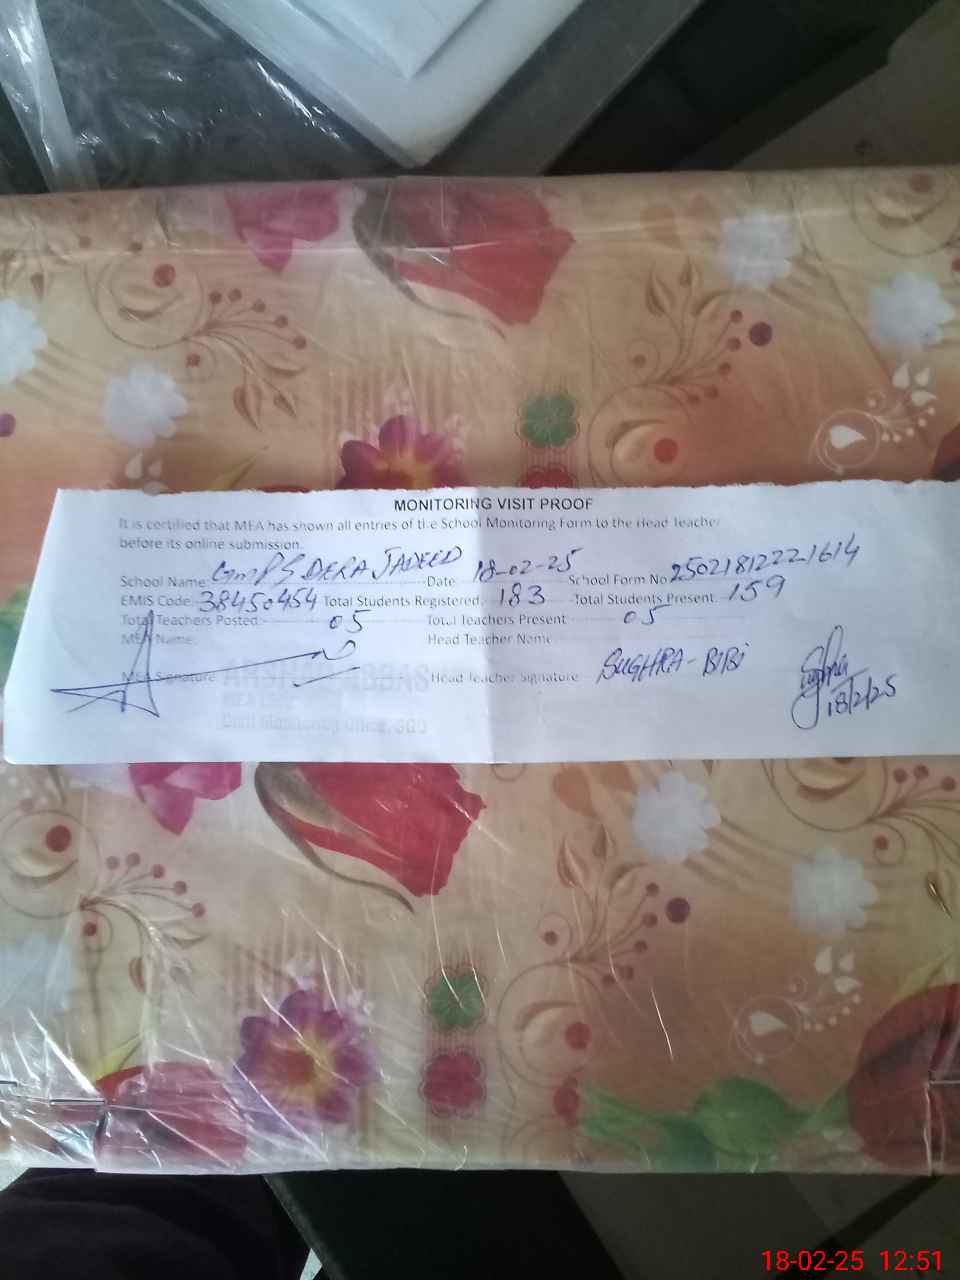 MONITORING VISIT PROOF
It is certified that MEA has shown all entries of the School Monitoring Form to the Head Teacher
before its online submission.
School Name: GMPS DERA JADEED Date: 18-02-25 School Form No 25021812221614
EMIS Code: 38450454 Total Students Registered: 183 Total Students Present: 159
Total Teachers Posted: 05 Total Teachers Present 05
MEA Name: Head Teacher Name
MEA Signature Head Teacher Signature SUGHRA-BIBI
18/2/25
18-02-25 12:51